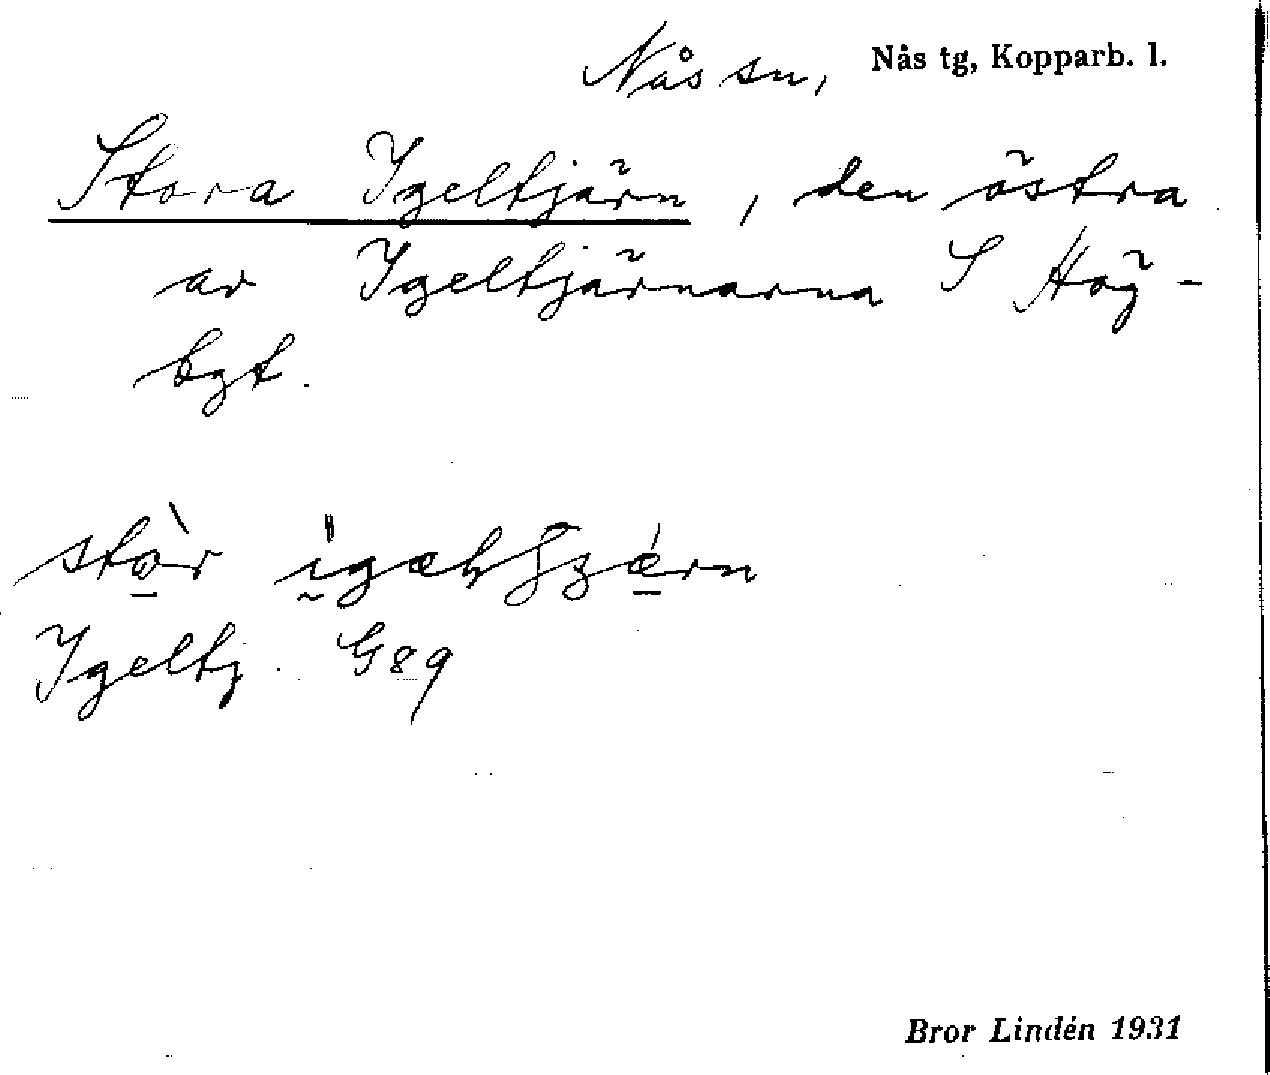 Nås sn, Nås tg, Kopparb. l.
Stora Igeltjärn, den östra
av Igeltjärnarna S Hög-
bgt.
Igeltj. G89
Bror Lindén 1931